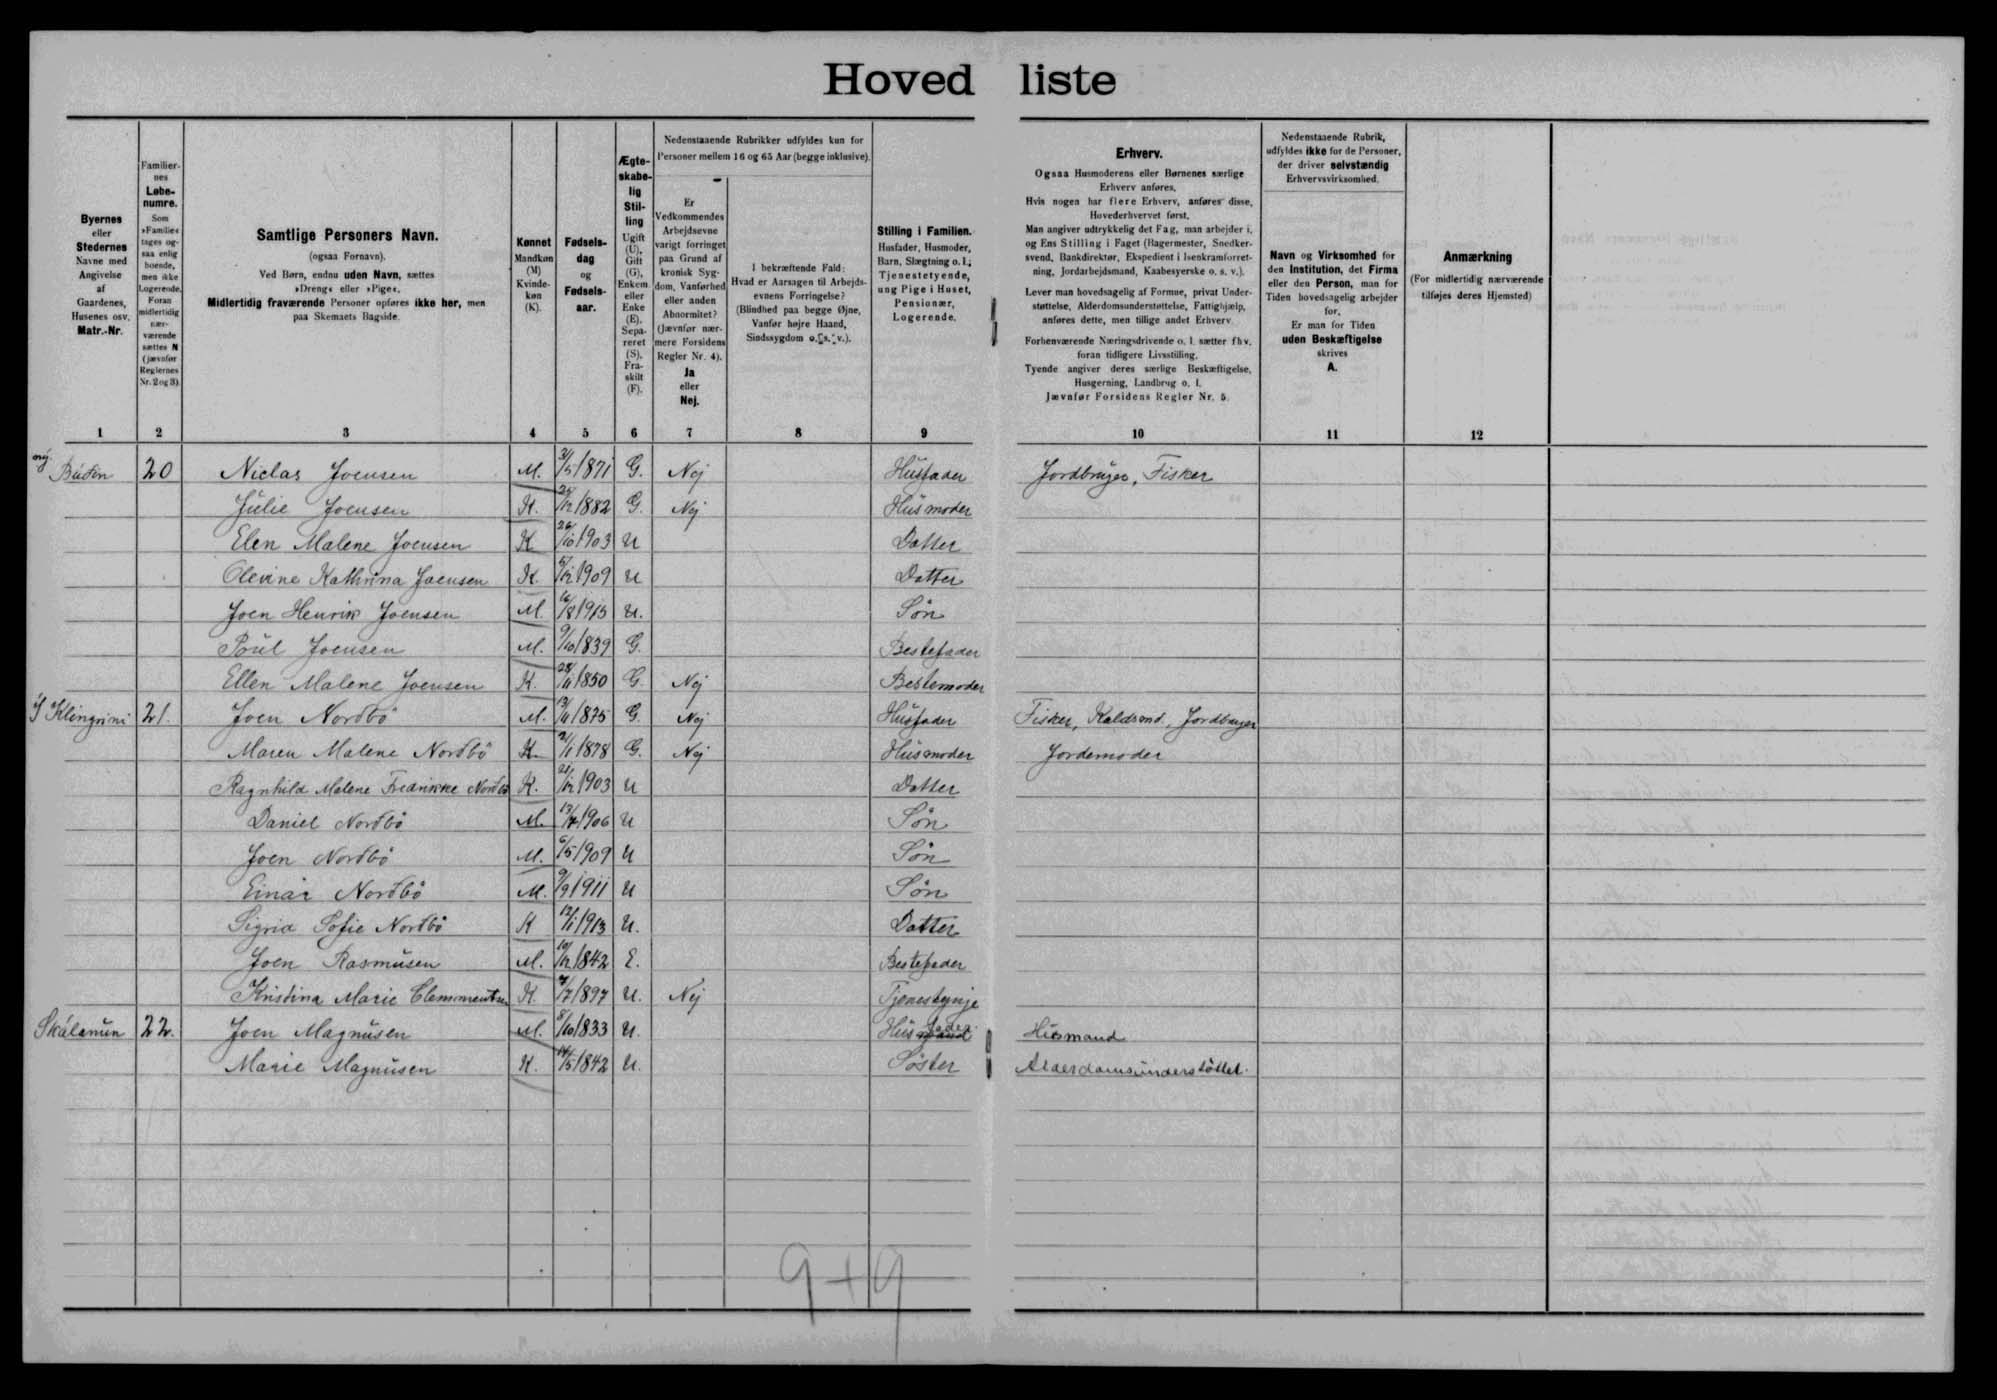 Hovedliste
Byernes
eller
Stedernes
Navne med
Angivelse
af
Gaardenes,
Husenes osv.
Matr.-Nr.
Familier-
nes
Løbe-
numre.
Som
»Familie«
tages og-
saa enlig
boende,
men ikke
Logerende.
Foran
midlertidig
nær-
værende
sættes N
(jævnfør
Reglernes
Nr. 2 og 3).
Samtlige Personers Navn.
(ogsaa Fornavn).
Ved Børn, endnu uden Navn, sættes
»Dreng« eller »Pige«.
Midlertidig fraværende Personer opføres ikke her, men
paa Skemaets Bagside.
Kønnet
Mandkøn
(M)
Kvinde-
køn
(K).
Fødsels-
dag
og
Fødsels-
aar.
Ægte-
skabe-
lig
Stil-
ling
Ugift
(U),
Gift
(G),
Enkem.
eller
Enke
(E),
Sepa-
reret
(S),
Fra-
skilt
(F).
Nedenstaaende Rubrikker udfyldes kun for
Personer mellem 16 og 65 Aar (begge inklusive).
Er
Vedkommendes
Arbejdsevne
varigt forringet
paa Grund af
kronisk Syg-
dom, Vanførhed
eller anden
Abnormitet?
(Jævnfør nær-
mere Forsidens
Regler Nr. 4).
Ja
eller
Nej.
I bekræftende Fald:
Hvad er Aarsagen til Arbejds-
evnens Forringelse?
(Blindhed paa begge Øjne,
Vanfør højre Haand,
Sindssygdom o. s. v.).
Stilling i Familien.
Husfader, Husmoder,
Barn, Slægtning o. l.;
Tjenestetyende,
ung Pige i Huset,
Pensionær,
Logerende.
Erhverv.
Ogsaa Husmoderens eller Børnenes særlige
Erhverv anføres.
Hvis nogen har flere Erhverv, anføres disse,
Hovederhvervet først.
Man angiver udtrykkelig det Fag, man arbejder i,
og Ens Stilling i Faget (Bagermester, Snedker-
svend, Bankdirektør, Ekspedient i Isenkramforret-
ning, Jordarbejdsmand, Kaabesyerske o. s. v.).
Lever man hovedsagelig af Formue, privat Under-
støttelse, Alderdomsunderstøttelse, Fattighjælp,
anføres dette, men tillige andet Erhverv.
Forhenværende Næringsdrivende o. l. sætter fhv.
foran tidligere Livsstilling.
Tyende angiver deres særlige Beskæftigelse,
Husgerning, Landbrug o. l.
Jævnfør Forsidens Regler Nr. 5.
Nedenstaaende Rubrik,
udfyldes ikke for de Personer,
der driver selvstændig
Erhvervsvirksomhed.
Navn og Virksomhed for
den Institution, det Firma
eller den Person, man for
Tiden hovedsagelig arbejder
for.
Er man for Tiden
uden Beskæftigelse
skrives
A.
Anmærkning
(For midlertidig nærværende
tilføjes deres Hjemsted)
1 2 3 4 5 6 7 8 9 10 11 12
20 Niclas Joensen M. 31/5 1871 G. Nej Husfader Jordbruger, Fisker
Julie Joensen K. /12 1882 G. Nej Husmoder
Elen Malene Joensen K 26/10 1903 U Datter
Olevine Kathrina Joensen K. 5/12 1909 U Datter
Joen Henrik Joensen M. 16/8 1915 U. Søn
Poul Joensen M. 9/10 1839 G. Bestefader
Ellen Malene Joensen K. 28/11 1850 G. Nej Bestemoder
Í Klingrini 21. Joen Norðbö M. 13/11 1875 G. Nej Husfader Fisker, Jordbruger
Maren Malene Norðbö K. 2/1 1878 G. Nej Husmoder Jordemoder
Ragnhild Malene Fredrikke Norðbö K. 21/12 1903 U Datter
Daniel Norðbö M. 1906 U Søn
Joen Norðbö M. 6/5 1909 U Søn
Einar Norðbö M. 9/9 1911 U Søn
Sigrid Sofie Norðbö K 12/1 1913 U. Datter
Joen Rasmusen M. 10/12 1842 E. Bestefader
Kristina Marie Clemmentsen K. /7 1897 U. Nej
Skálanum 22. Joen Magnusen M. 8/10 1833 U. Husfader Husmand
Marie Magnusen K. 14/5 1842 U. Søster Alderdomsunderstöttet.
9+9